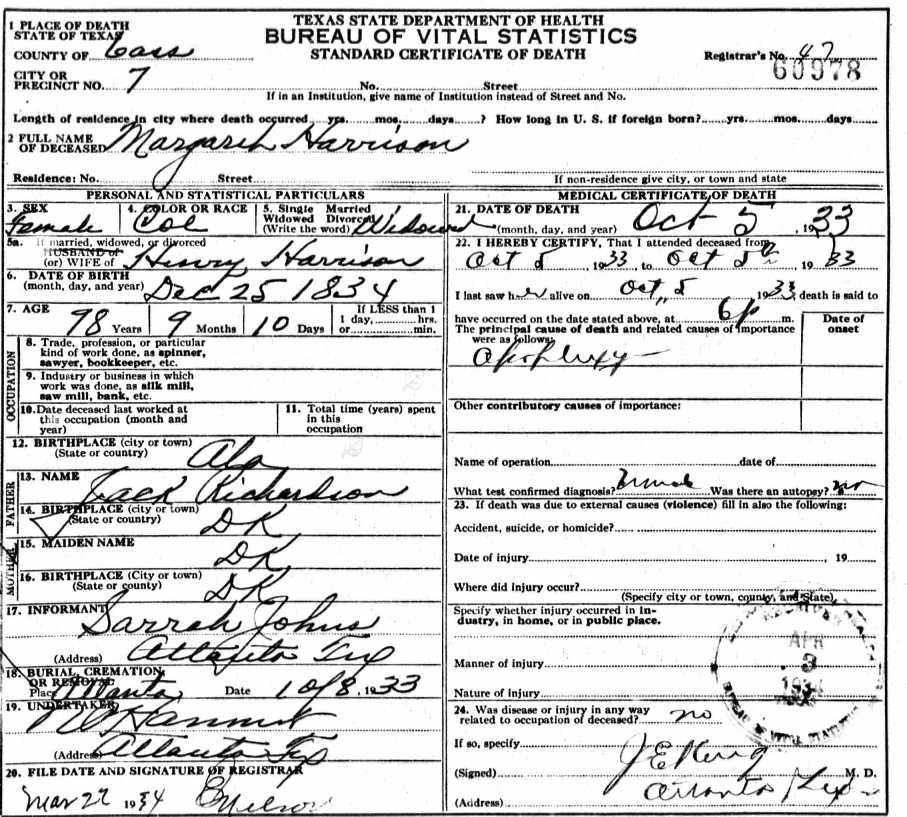 TEXAS STATE DEPARTMENT OF HEALTH
BUREAU OF VITAL STATISTICS
STANDARD CERTIFICATE OF DEATH
1 PLACE OF DEATH
STATE OF TEXAS
COUNTY OF Cass
Registrar's No. 47
60978
CITY OR
PRECINCT NO. 7 No. Street
If in an Institution, give name of Institution instead of Street and No.
Length of residence in city where death occurred yrs. mos. days ? How long in U. S. if foreign born? yrs. mos. days
2 FULL NAME
OF DECEASED Margaret Harrison
Residence: No. Street
If non-residence give city, or town and state
PERSONAL AND STATISTICAL PARTICULARS
3. SEX 4. COLOR OR RACE 5. Single Married
Widowed Divorced
(Write the word) Widowed
Female Col
5a. If married, widowed, or divorced
HUSBAND of
(or) WIFE of Henry Harrison
6. DATE OF BIRTH
(month, day, and year) Dec 25 1834
7. AGE If LESS than 1
98 Years 9 Months 10 Days 1 day, hrs.
or min.
OCCUPATION
8. Trade, profession, or particular
kind of work done, as spinner,
sawyer, bookkeeper, etc.
9. Industry or business in which
work was done, as silk mill,
saw mill, bank, etc.
10. Date deceased last worked at
this occupation (month and
year)
11. Total time (years) spent
in this
occupation
12. BIRTHPLACE (city or town)
(State or country) Ala
FATHER
13. NAME Jack Richardson
14. BIRTHPLACE (city or town)
(State or country) DK
MOTHER
15. MAIDEN NAME DK
16. BIRTHPLACE (City or town)
(State or country) DK
17. INFORMANT Sarrah Johns
(Address) Atlanta Tex
18. BURIAL, CREMATION
OR REMOVAL
Place Atlanta Date 10/8, 1933
19. UNDERTAKER
(Address) Atlanta Tex
20. FILE DATE AND SIGNATURE OF REGISTRAR
Mar 22 1934
MEDICAL CERTIFICATE OF DEATH
21. DATE OF DEATH
(month, day, and year) Oct 5, 1933
22. I HEREBY CERTIFY, That I attended deceased from
Oct 5 1933 to Oct 5th 1933
I last saw her alive on Oct 5 1933, death is said to
have occurred on the date stated above, at 6 p m.
The principal cause of death and related causes of importance
were as follows:
Date of
onset
Other contributory causes of importance:
Name of operation date of
What test confirmed diagnosis? Was there an autopsy? no
23. If death was due to external causes (violence) fill in also the following:
Accident, suicide, or homicide?
Date of injury , 19
Where did injury occur?
(Specify city or town, county, and State)
Specify whether injury occurred in in-
dustry, in home, or in public place.
Manner of injury
Nature of injury
APR
3
1934
24. Was disease or injury in any way
related to occupation of deceased? no
If so, specify
(Signed) J E King M. D.
(Address) Atlanta Tex